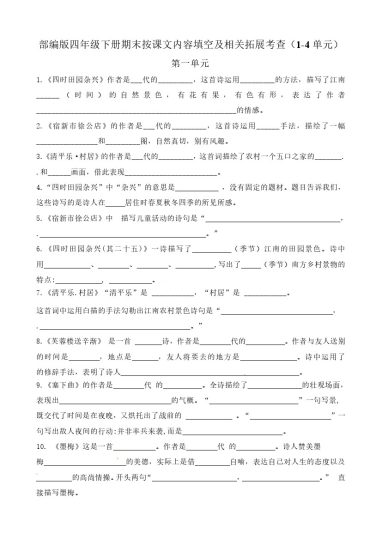 部编版四年级下册期末按课文内容填空及相关拓展考查（1-4 单元）
第一单元
1.《四时田园杂兴》作者是___代的________，这首诗运用________的方法，描写了江南
______（时间）的自然景色，有花有果，有色有形，表达了作者
________________________________________的情感。
2.《宿新市徐公店》的作者是___代的________，这首诗运用______手法，描绘了一幅
____________和________图，自然真切，别有风趣。
3.《清平乐·村居》的作者是___代的________，这首词描绘了农村一个五口之家的______．
．和______画面，借此表现____________________。
4.“四时田园杂兴”中“杂兴”的意思是__________，没有固定的题材。题目告诉我们，
这些诗写的是诗人在_____居住时春夏秋冬四季的所见所感。
5.《宿新市徐公店》中 描写儿童活动的诗句是“______________________________，
____________________________________。“
6.《四时田园杂兴(其二十五)》一诗描写了_________（季节）江南的田园景色。诗中
用__________、________、________、________,写出了_____（季节）南方乡村景物的
特点:__________，__________。
7.《清平乐.村居》“清平乐”是 __________，“村居”是 __________。
这首词中运用白描的手法勾勒出江南农村景色诗句是“________________________，
．________________________________。”
8.《芙蓉楼送辛渐》 是一首 ______诗，作者是________代的________。作者与友人送别
的时间是_______，地点是_______，友人将要去的地方是____________。诗中运用了
的修辞手法，表明了诗人____________________________________。
9.《塞下曲》的作者是_______代 的________。全诗描绘了____________的壮观场面，
表现出________________________的气概。“____________________”一句写景,
既交代了时间是在夜晚，又烘托出了战前的 __________ 。“__________________”一
句写出敌人夜间的行动:并非率兵来袭,而是______________________。
10. 《墨梅》这是一首_________。作者是_______代 的 _________。诗人赞美墨
梅________________的美德，实际上是借________自喻，表达自己对人生的态度以及
________的高尚情操。开头两句“________________，________________。” 直
接描写墨梅。